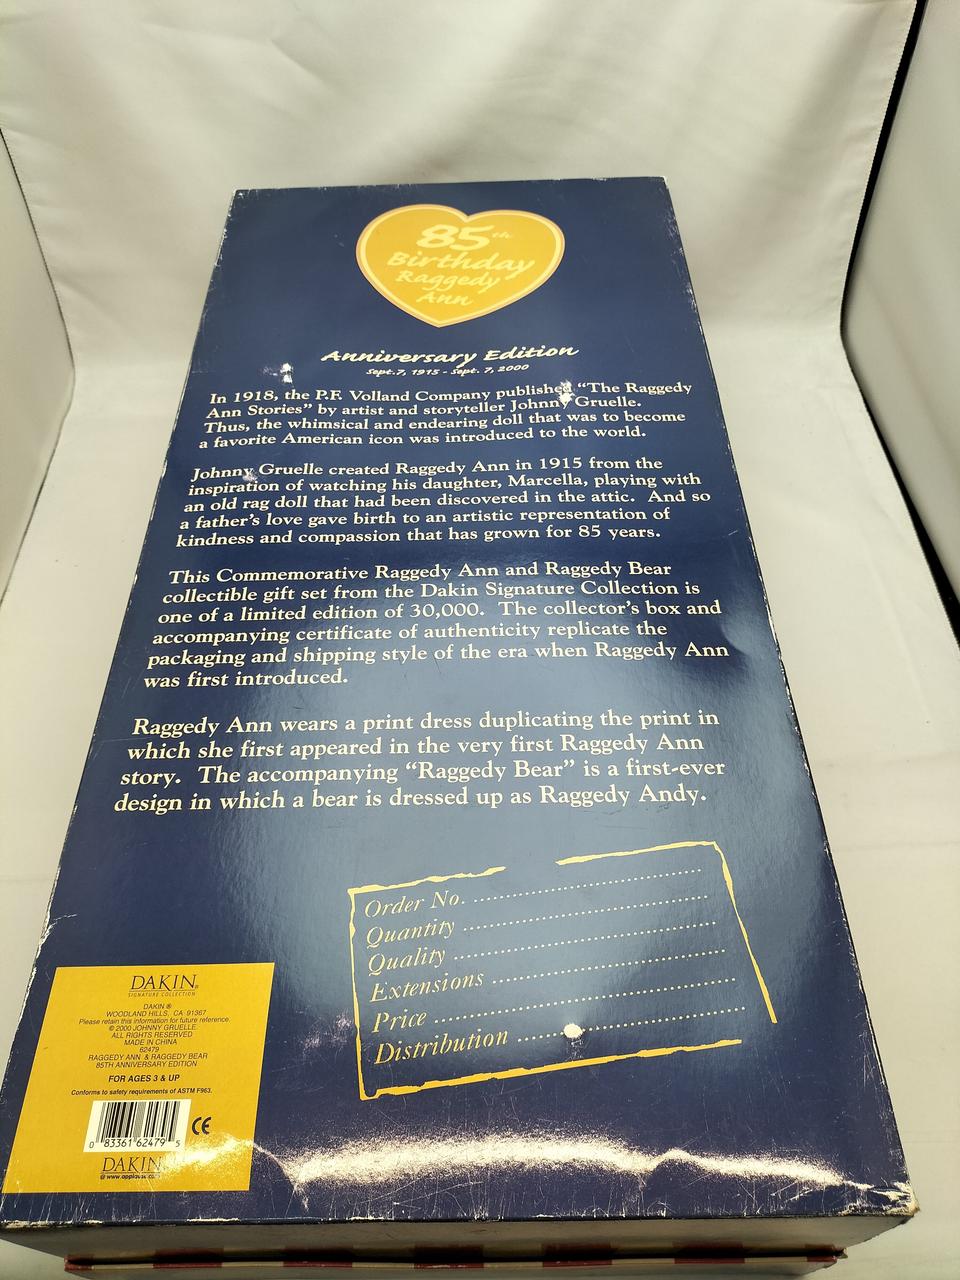 85th
Birthday
Raggedy
Ann
Anniversary Edition
Sept. 7, 1915 - Sept. 7, 2000
In 1918, the P.F. Volland Company published “The Raggedy
Ann Stories” by artist and storyteller Johnny Gruelle.
Thus, the whimsical and endearing doll that was to become
a favorite American icon was introduced to the world.
Johnny Gruelle created Raggedy Ann in 1915 from the
inspiration of watching his daughter, Marcella, playing with
an old rag doll that had been discovered in the attic. And so
a father’s love gave birth to an artistic representation of
kindness and compassion that has grown for 85 years.
This Commemorative Raggedy Ann and Raggedy Bear
collectible gift set from the Dakin Signature Collection is
one of a limited edition of 30,000. The collector’s box and
accompanying certificate of authenticity replicate the
packaging and shipping style of the era when Raggedy Ann
was first introduced.
Raggedy Ann wears a print dress duplicating the print in
which she first appeared in the very first Raggedy Ann
story. The accompanying “Raggedy Bear” is a first-ever
design in which a bear is dressed up as Raggedy Andy.
Order No. ........................................
Quantity ........................................
Quality ........................................
Extensions ........................................
Price ........................................
Distribution ........................................
DAKIN®
SIGNATURE COLLECTION
DAKIN ®
WOODLAND HILLS, CA 91367
Please retain this information for future reference.
© 2000 JOHNNY GRUELLE
ALL RIGHTS RESERVED
MADE IN CHINA
62479
RAGGEDY ANN & RAGGEDY BEAR
85TH ANNIVERSARY EDITION
FOR AGES 3 & UP
Conforms to safety requirements of ASTM F963.
CE
0 83361 62479 5
DAKIN
@ www.applause.com